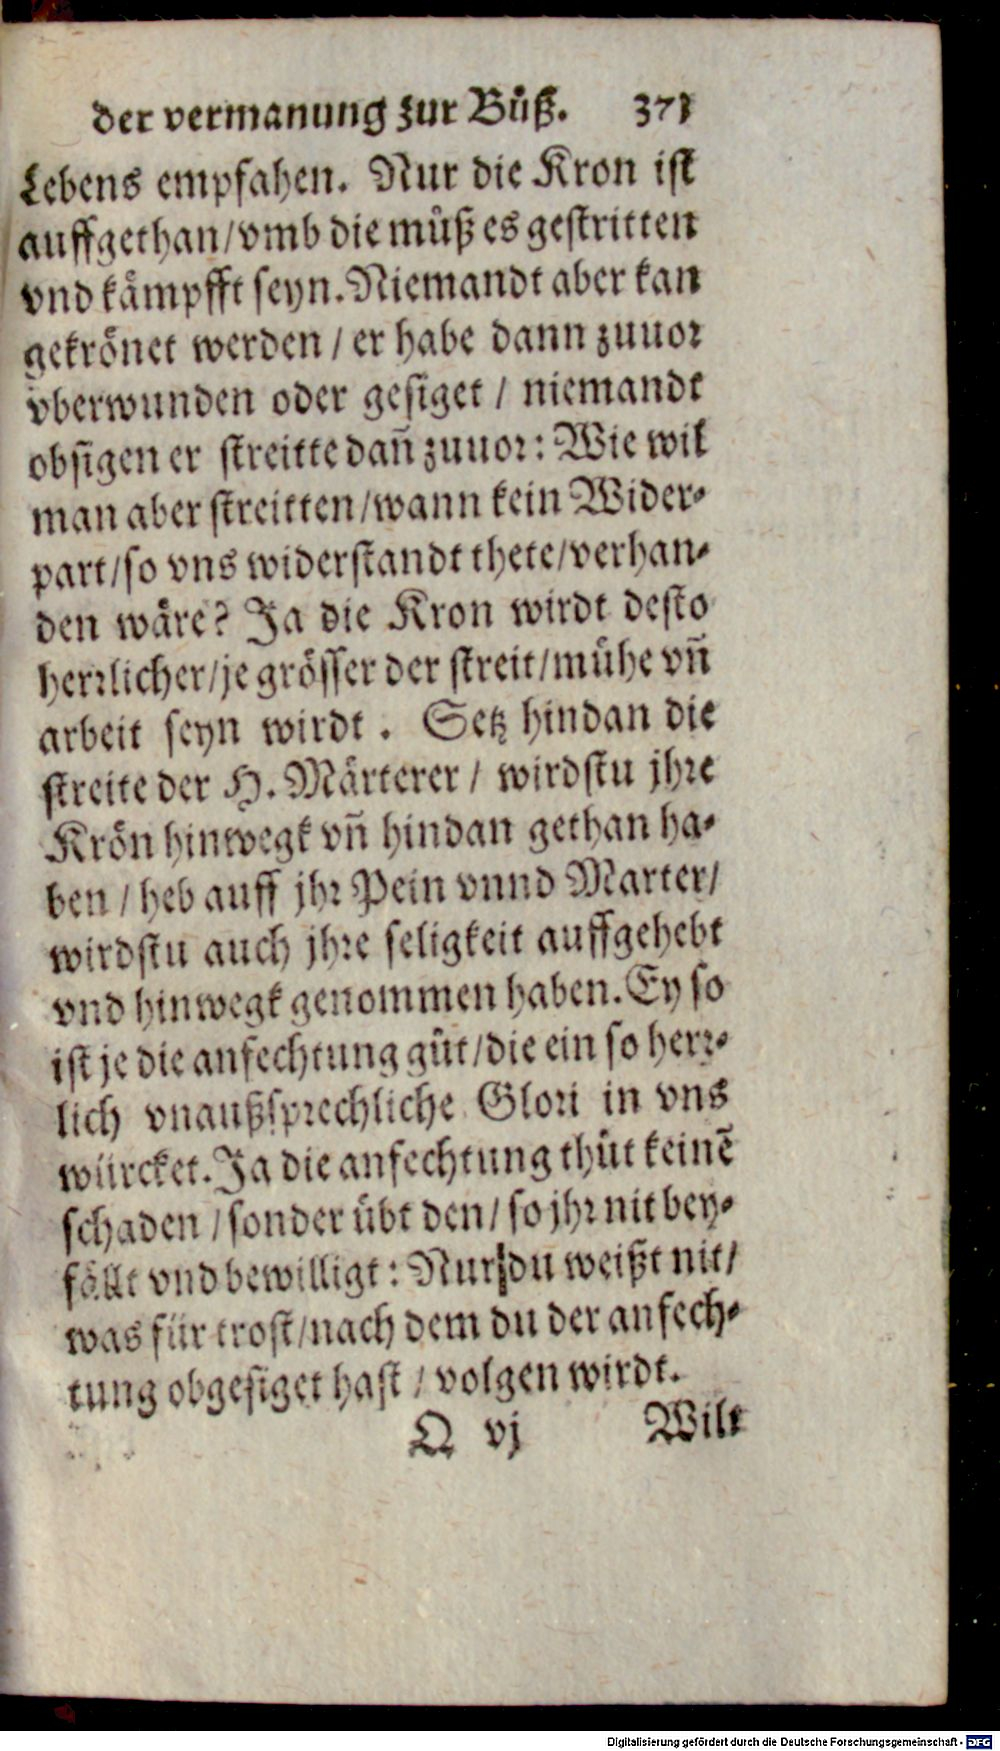 der vermanung zur Bůß. 371
Lebens empfahen. Nur die Kron ist
auffgethan/vmb die můß es gestritten
vnd kämpfft seyn. Niemandt aber kan
gekrönet werden / er habe dann zuuor
vberwunden oder gesiget / niemandt
obsigen er streitte dañ zuuor: Wie wil
man aber streitten/wann kein Wider-
part/so vns widerstandt thete/verhan-
den wäre? Ja die Kron wirdt desto
herrlicher/je grösser der streit/mühe vñ
arbeit seyn wirdt. Setz hindan die
streite der H. Märterer / wirdstu jhre
Krön hinwegk vñ hindan gethan ha-
ben / heb auff jhr Pein vnnd Marter/
wirdstu auch jhre seligkeit auffgehebt
vnd hinwegk genommen haben. Ey so
ist je die anfechtung gůt/die ein so herr-
lich vnaußsprechliche Glori in vns
würcket. Ja die anfechtung thůt keinẽ
schaden / sonder übt den/ so jhr nit bey-
fällt vnd bewilligt: Nur du weißt nit/
was für trost/nach dem du der anfech-
tung obgesiget hast / volgen wirdt.
Q vj Wilt
Digitalisierung gefördert durch die Deutsche Forschungsgemeinschaft - DFG